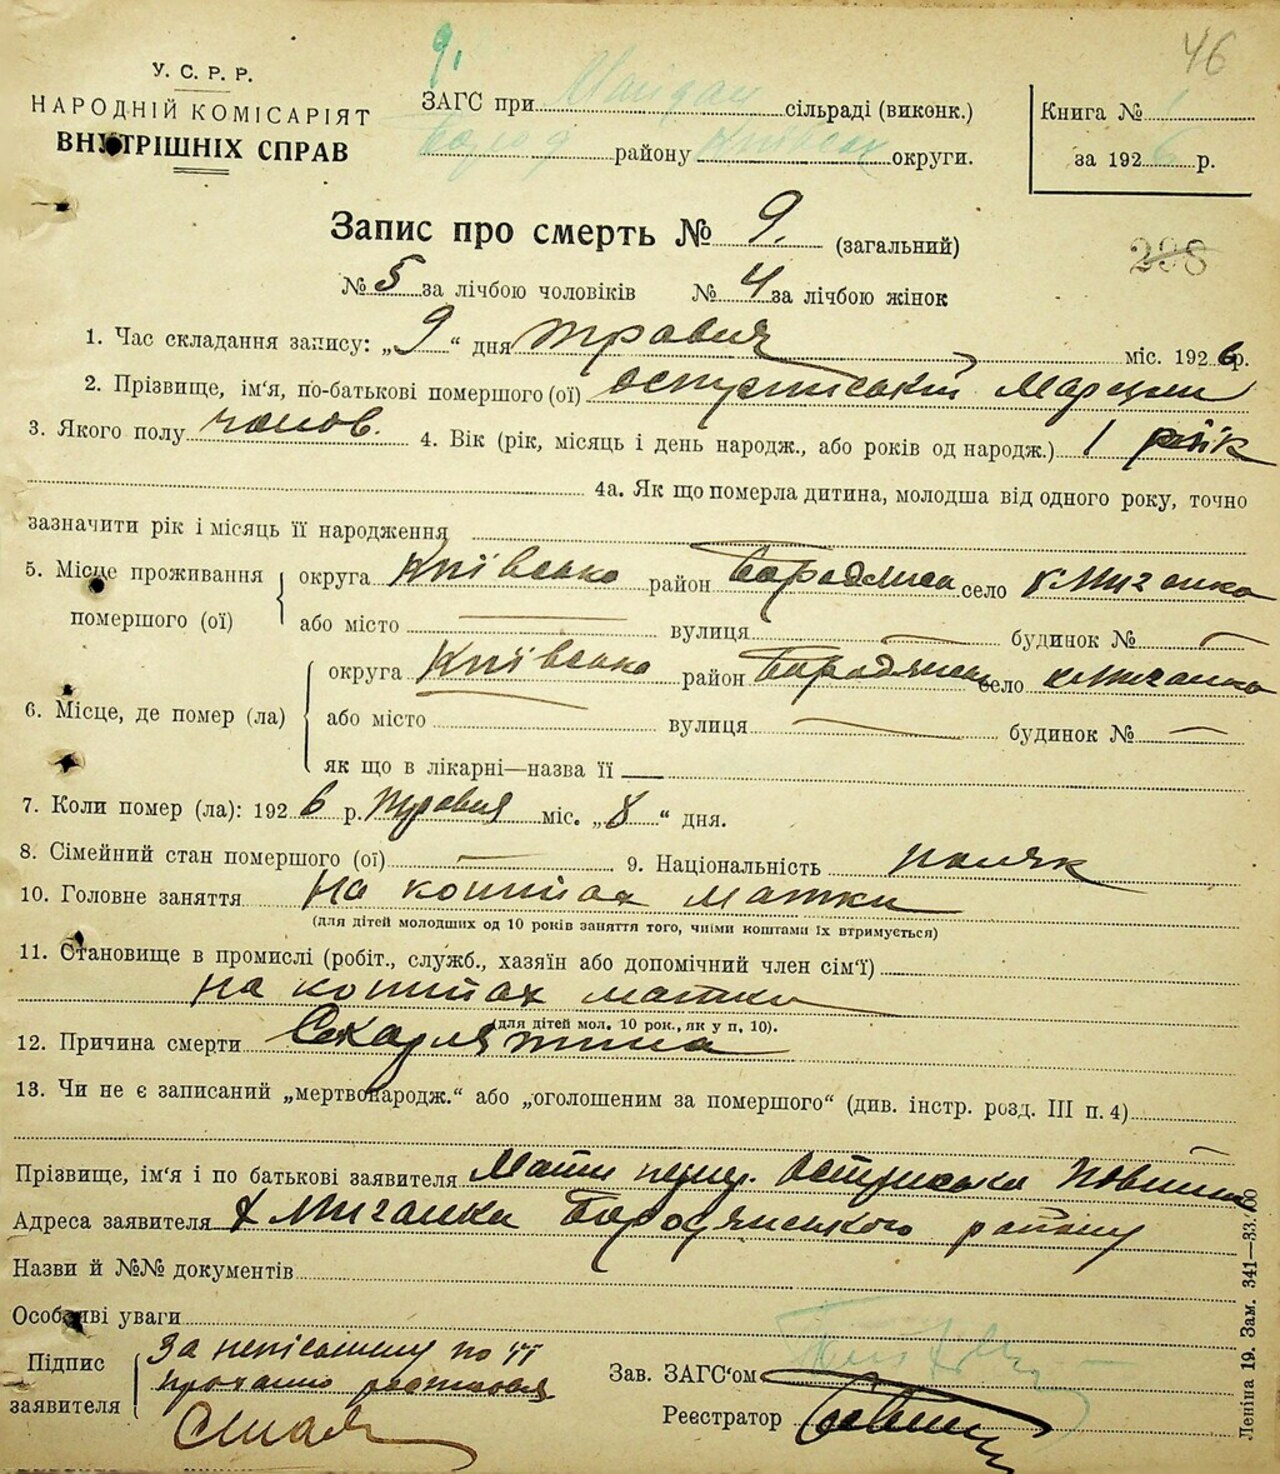 46
9.
У. С. Р. Р.
НАРОДНІЙ КОМІСАРІЯТ
ВНУТРІШНІХ СПРАВ
ЗАГС при Майдан сільраді (виконк.)
Бород району Київськ округи.
Книга № 1
за 1926 р.
Запис про смерть № 9. (загальний)
298
№ 5 за лічбою чоловіків № 4 за лічбою жінок
1. Час складання запису: „9“ дня травня міс. 1926 р.
2. Прізвище, ім'я, по-батькові помершого (ої)
3. Якого полу чолов. 4. Вік (рік, місяць і день народж., або років од народж.) 1 рік
4а. Як що померла дитина, молодша від одного року, точно
зазначити рік і місяць її народження
5. Місце проживання помершого (ої) округа Київсько район село к. Мигалка
або місто вулиця будинок №
6. Місце, де помер (ла) округа Київсько район село к. Мигалка
або місто вулиця будинок №
як що в лікарні—назва її
7. Коли помер (ла): 1926 р. травня міс. „8“ дня.
8. Сімейний стан помершого (ої) 9. Національність поляк
10. Головне заняття на коштах матки
(для дітей молодших од 10 років заняття того, чиїми коштами їх втримується)
11. Становище в промислі (робіт., служб., хазяїн або допомічний член сім'ї)
на коштах матки
(для дітей мол. 10 рок., як у п. 10).
12. Причина смерти Скарлятина
13. Чи не є записаний „мертвонародж.“ або „оголошеним за помершого“ (див. інстр. розд. III п. 4)
Прізвище, ім'я і по батькові заявителя Мати
Адреса заявителя х Мигалка Бородянського району
Назви й №№ документів
Особливі уваги
Підпис заявителя За неписьмену по її
проханню
Зав. ЗАГС'ом
Реєстратор
Леніна 19. Зам. 341—33.